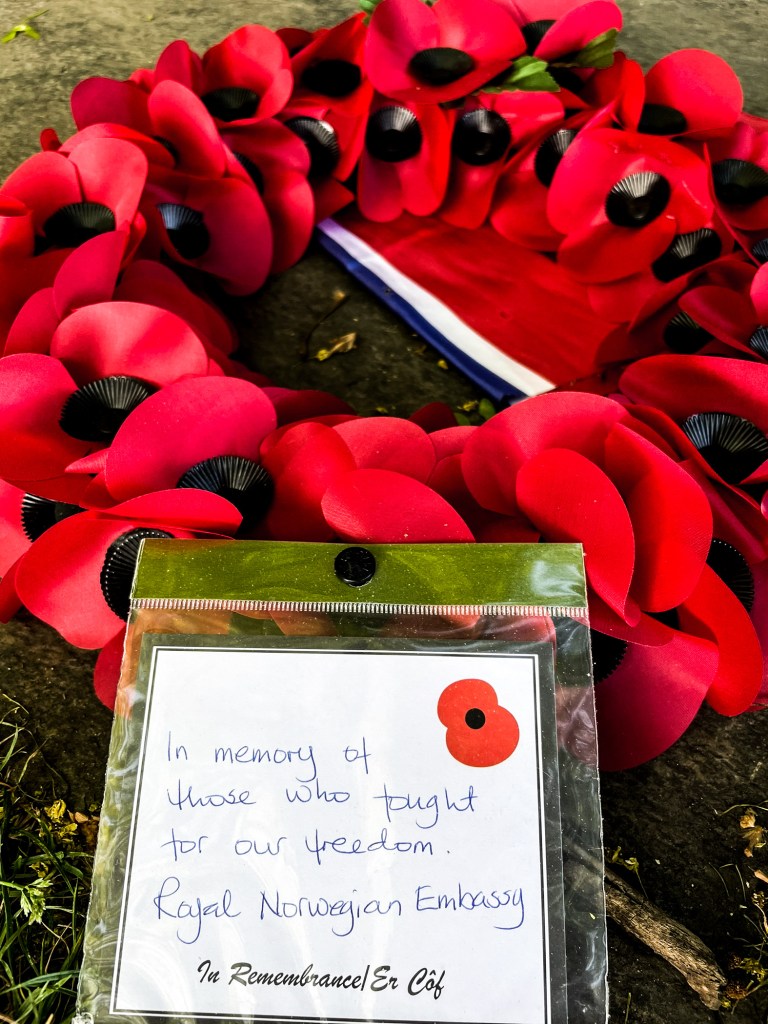 In memory of
those who fought
for our freedom.
Royal Norwegian Embassy
In Remembrance/Er Côf